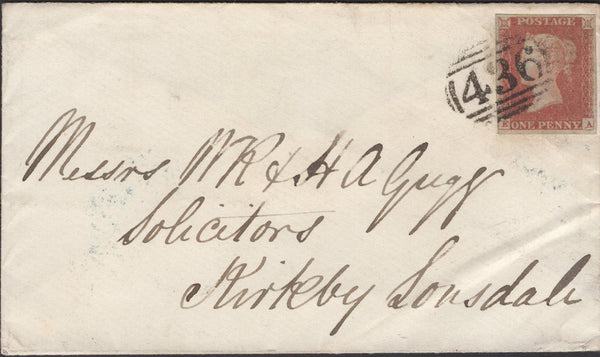 POSTAGE
436
ONE PENNY A
Messrs WR & H A Gregg
Solicitors
Kirkby Lonsdale